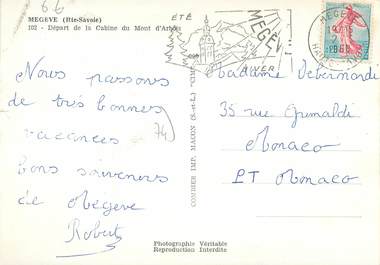 66
MEGEVE (Hte-Savoie)
102 - Départ de la Cabine du Mont d'Arbois
ÉTÉ
MEGÈVE
HIVER
MEGEVE
HTE SAVOIE
Nous passons
de très bonnes
vacances
74
bons souvenirs
de Megève
Robert
COMBIER IMP. MACON (S.-et-L.) "CIM"
Madame Debernardi
35 rue Grimaldi
Monaco
PT Monaco
Photographie Véritable
Reproduction Interdite